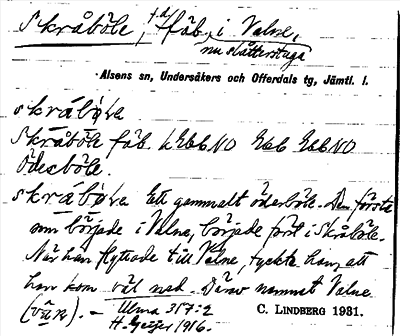 Skråböle, f.d. fäb. i Valne,
nu slåtterstuga
Alsens sn, Undersåkers och Offerdals tg, Jämtl. l.
skråbøłɐ
Skråböle fäb.
Ödesböle.
skråbøłɐ Ett gammalt ödesböle. Den förste
som började i Valne, började först i Skråböle.
När han flyttade till Valne, tyckte han, att
han kom väl ned. Därav namnet Valne
Ulma 357:2 C. LINDBERG 1931.
H. Geijer 1916.